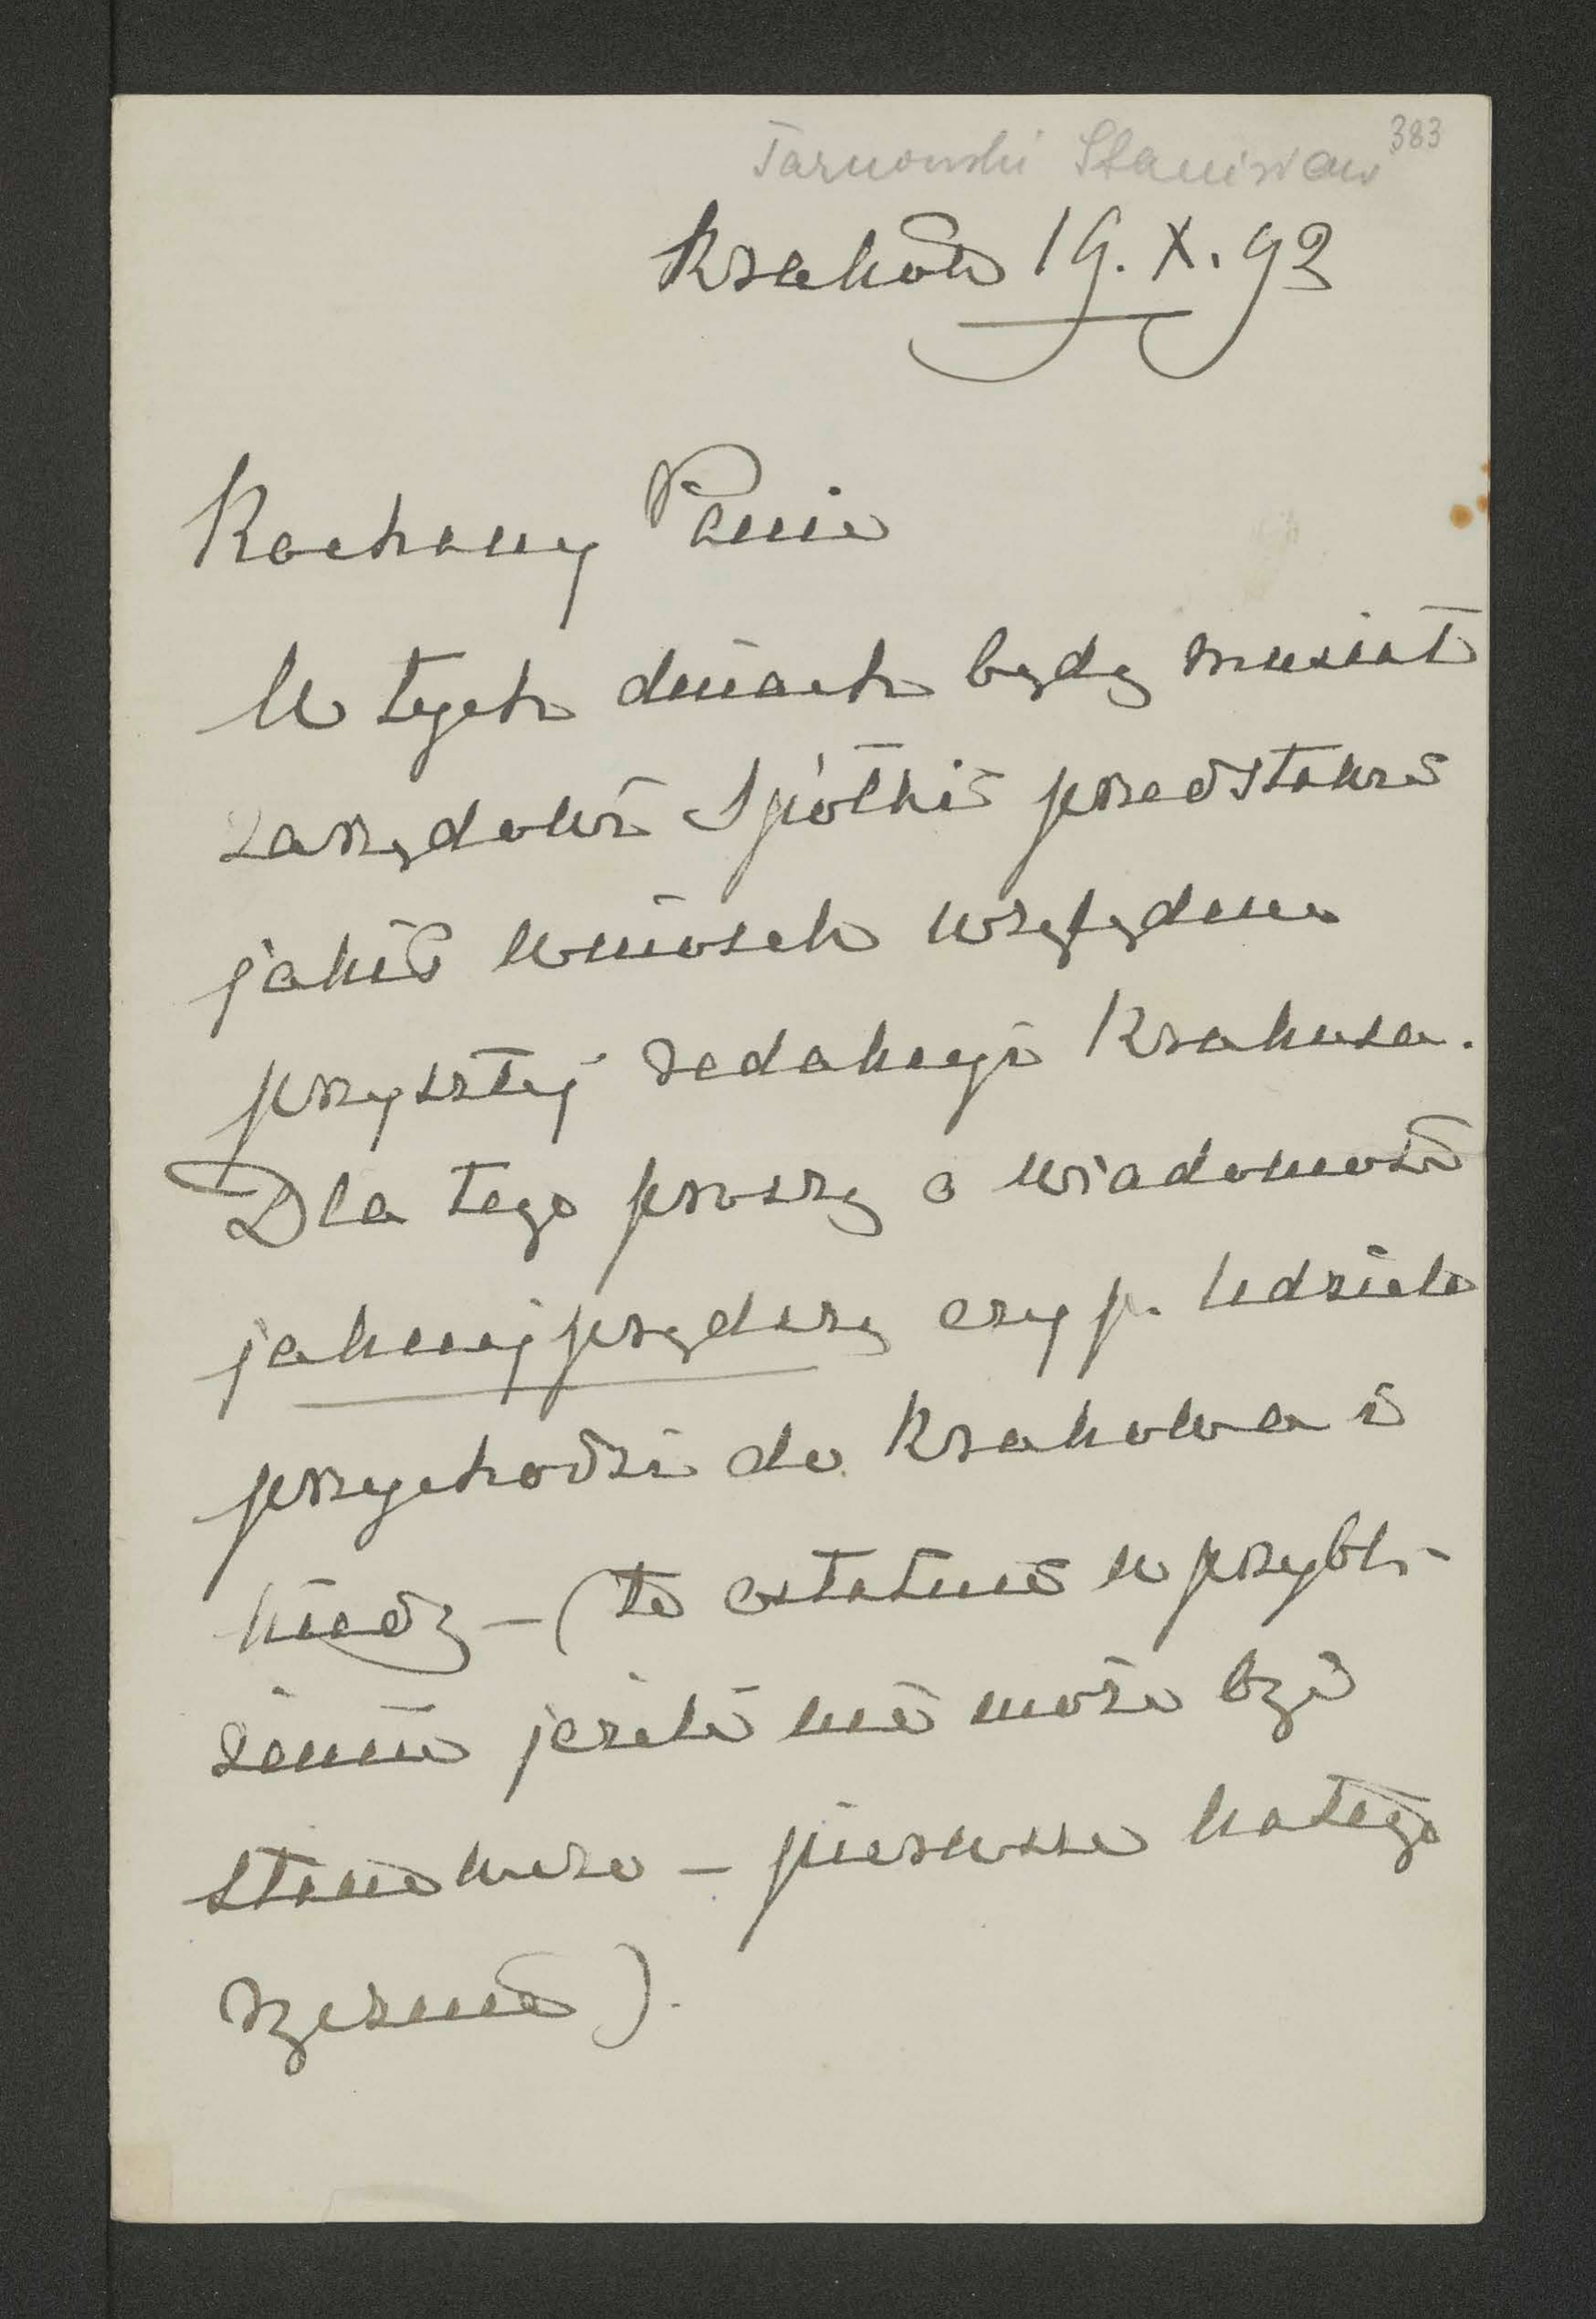 383
Tarnowski Stanisław
Kraków 19. X. 93
Kochany Panie
W tych dniach będę musiał
zarządowi Spółki przedstawić
jakiś wniosek względem
przyszłej redakcyi Krakusa.
Dla tego proszę o wiadomość
jaknajprędszą czy p. Udziela
przychodzi do Krakowa i
kiedy – (to ostatnie w przybli-
żeniu jeżeli nie może być
stanowczo – pierwsze katego
rycznie).